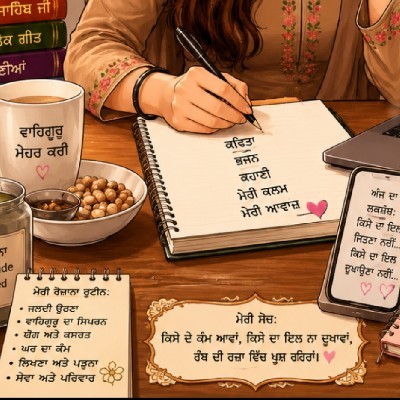 ਸਾਹਿਬ ਜੀ
ਗੀਤ
ਵਾਹਿਗੁਰੂ
ਮੇਹਰ ਕਰੀ
ਕਵਿਤਾ
ਭਜਨ
ਕਹਾਣੀ
ਮੇਰੀ ਕਲਮ
ਮੇਰੀ ਆਵਾਜ਼
ਅੱਜ ਦਾ
ਕਿਸੇ ਦਾ ਦਿਲ
ਨਹੀਂ...
ਕਿਸੇ ਦਾ ਦਿਲ
ਦੁਖਾਉਣਾ ਨਹੀਂ...
ਮੇਰੀ ਰੋਜ਼ਾਨਾ ਰੁਟੀਨ:
• ਜਲਦੀ ਉਠਣਾ
• ਵਾਹਿਗੁਰੂ ਦਾ ਸਿਮਰਨ
• ਯੋਗ ਅਤੇ ਕਸਰਤ
• ਘਰ ਦਾ ਕੰਮ
• ਲਿਖਣਾ ਅਤੇ ਪੜ੍ਹਨਾ
• ਸੇਵਾ ਅਤੇ ਪਰਿਵਾਰ
ਮੇਰੀ ਸੋਚ:
ਕਿਸੇ ਦੇ ਕੰਮ ਆਵਾਂ, ਕਿਸੇ ਦਾ ਦਿਲ ਨਾ ਦੁਖਾਵਾਂ,
ਰੱਬ ਦੀ ਰਜ਼ਾ ਵਿੱਚ ਖੁਸ਼ ਰਹਿਰਾਂ।